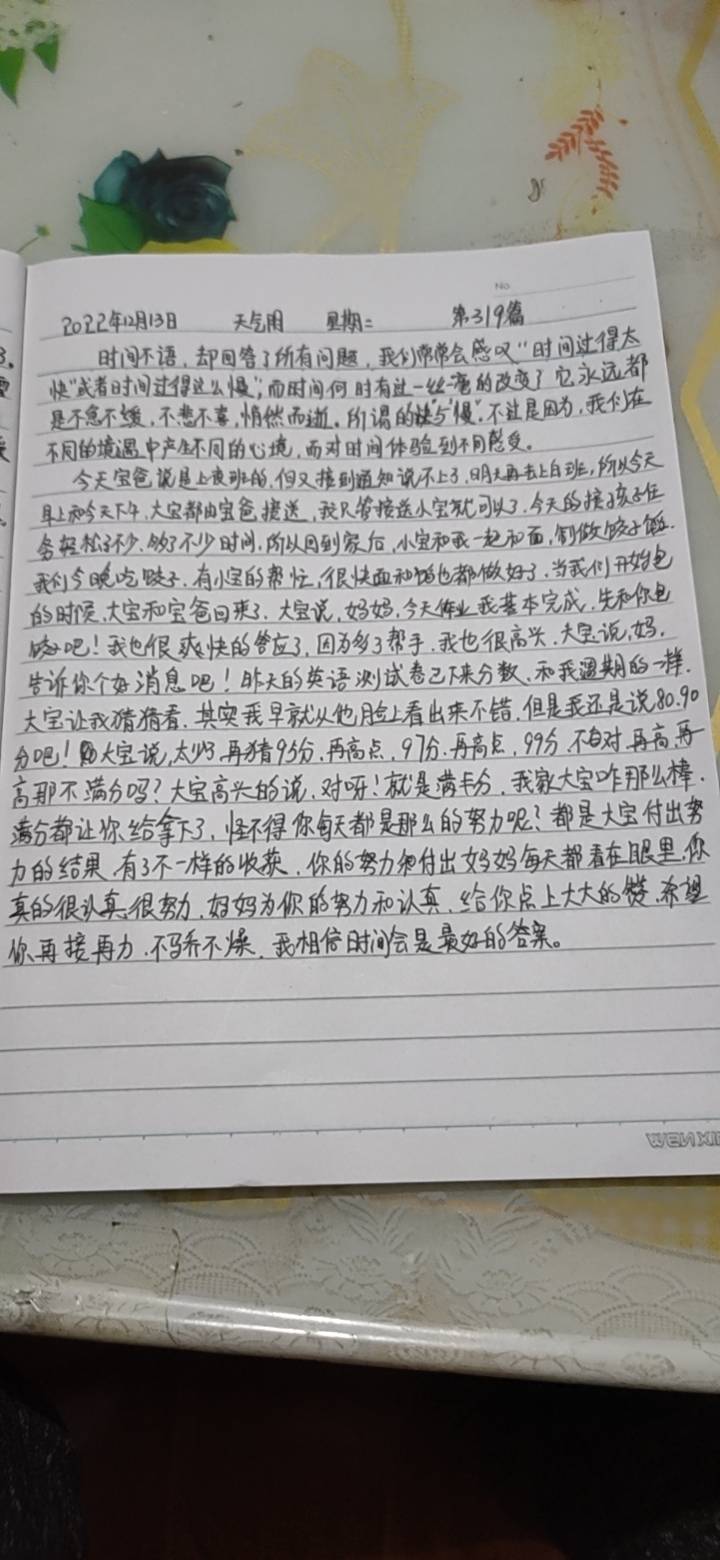 No.
2022年12月13日 天气阴 星期二 第319篇
时间不语,却回答了所有问题,我们常常会感叹"时间过得太
快"或者时间过得这么慢",而时间何时有过一丝毫的改变了它永远都
是不急不缓,不悲不喜,悄然而逝。所谓的"快"与"慢",不过是因为,我们在
不同的境遇中产生不同的心境,而对时间体验到不同感受。
今天宝爸说是上夜班的,但又接到通知说不上了,明天再去上白班,所以今天
早上和今天下午,大宝都由宝爸接送,我只管接送小宝就可以了,今天的接孩子任
务轻松了不少,够了不少时间,所以回到家后,小宝和我一起和面,制做饺子馅.
我们今晚吃饺子,有小宝的帮忙,很快面和馅也都做好了,当我们开始包
的时候,大宝和宝爸回来了,大宝说,妈妈,今天作业我基本完成,先和你包
饺子吧!我也很爽快的答应了,因为多了帮手,我也很高兴,大宝说,妈,
告诉你个好消息吧!昨天的英语测试卷已下来分数,和我遇期的一样.
大宝让我猜猜看,其实我早就从他脸上看出来不错,但是我还是说80.90
分吧!大宝说,太少了,再猜95分,再高点,97分,再高点,99分,不对,再高,再
高那不满分吗?大宝高兴的说,对呀!就是满分,我家大宝咋那么棒.
满分都让你给拿下了,怪不得你每天都是那么的努力呢?都是大宝付出努
力的结果,有了不一样的收获,你的努力和付出妈妈每天都看在眼里,你
真的很认真,很努力,妈妈为你的努力和认真,给你点上大大的赞,希望
你再接再力,不骄不燥,我相信时间会是最好的答案。
WENXI